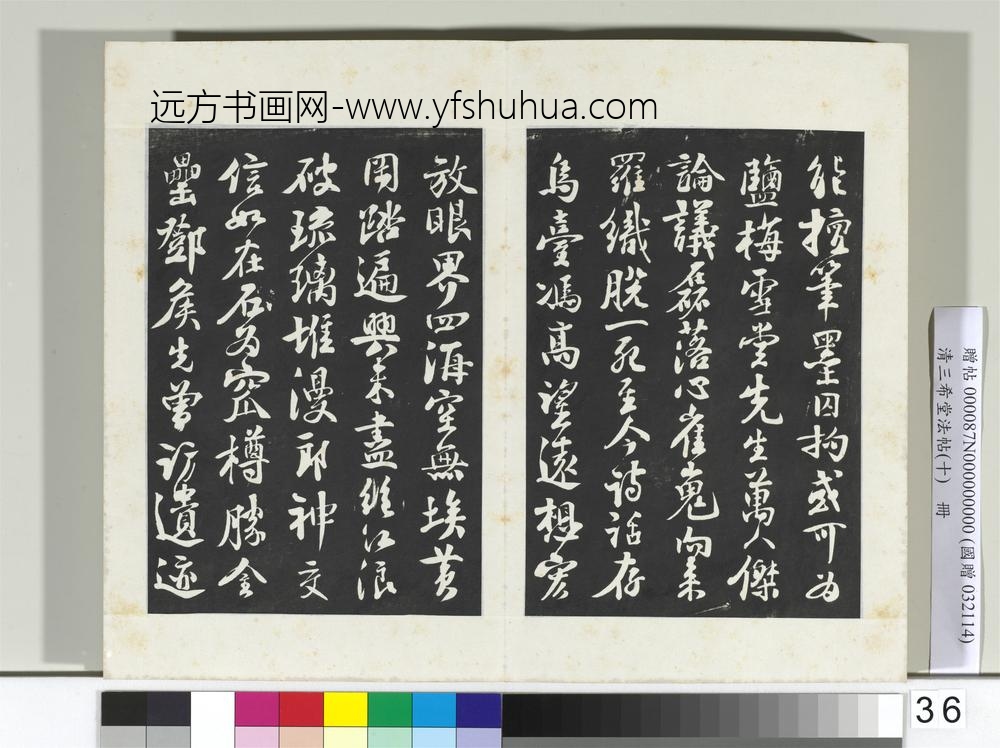 远方书画网-www.yfshuhua.com
能擅筆墨囚拘或可為
鹽梅雪堂先生萬人傑
論議磊落心崔嵬向來
羅織脫一死至今詩話存
烏臺馮高望遠想宏
放眼界四海空無埃黃
岡踏遍興未盡絕江浪
破琉璃堆漫郎神交
信如在石為窊樽勝金
罍鄧侯先曾訪遺迹
贈帖 000087N000000000 (國贈 032114)
清三希堂法帖(十) 冊
36